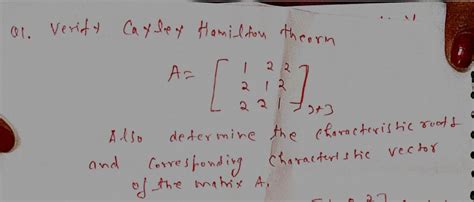 Q1. Verify Cayley Hamilton theorm
A = [ 1 2 2
2 1 2
2 2 1 ] 3*3
Also determine the characteristic roots
and corresponding characteristic vector
of the matrix A.